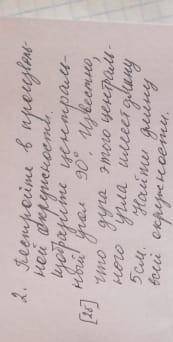 2. Постройте в произволь-
ной окружности.
Изобразите централь-
ный угол 90°. Известно,
что дуга этого централь-
ного угла имеет длину
5см. Найти длину
всей окружности.
[2б]